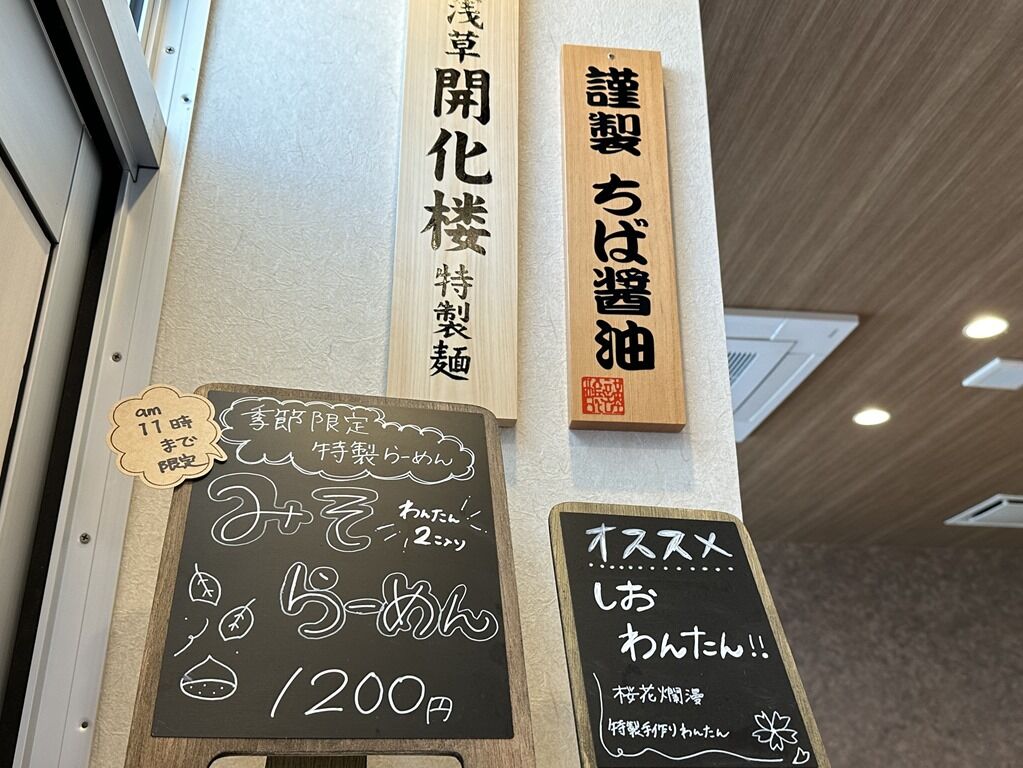 浅草 開化楼 特製麺
謹製 ちば醤油
am
11時
まで
限定
季節限定
特製らーめん
みそ
わんたん
2コ入り
らーめん
1200円
オススメ
しお
わんたん!!
桜花爛漫
特製手作りわんたん